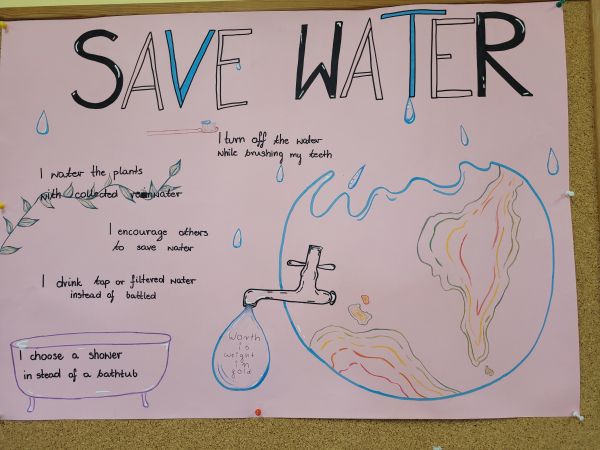 SAVE WATER
I turn off the water
while brushing my teeth
I water the plants
with collected rainwater
I encourage others
to save water
I drink tap or filtered water
instead of battled
Worth
is
weight
in
gold
I choose a shower
in stead of a bathtub